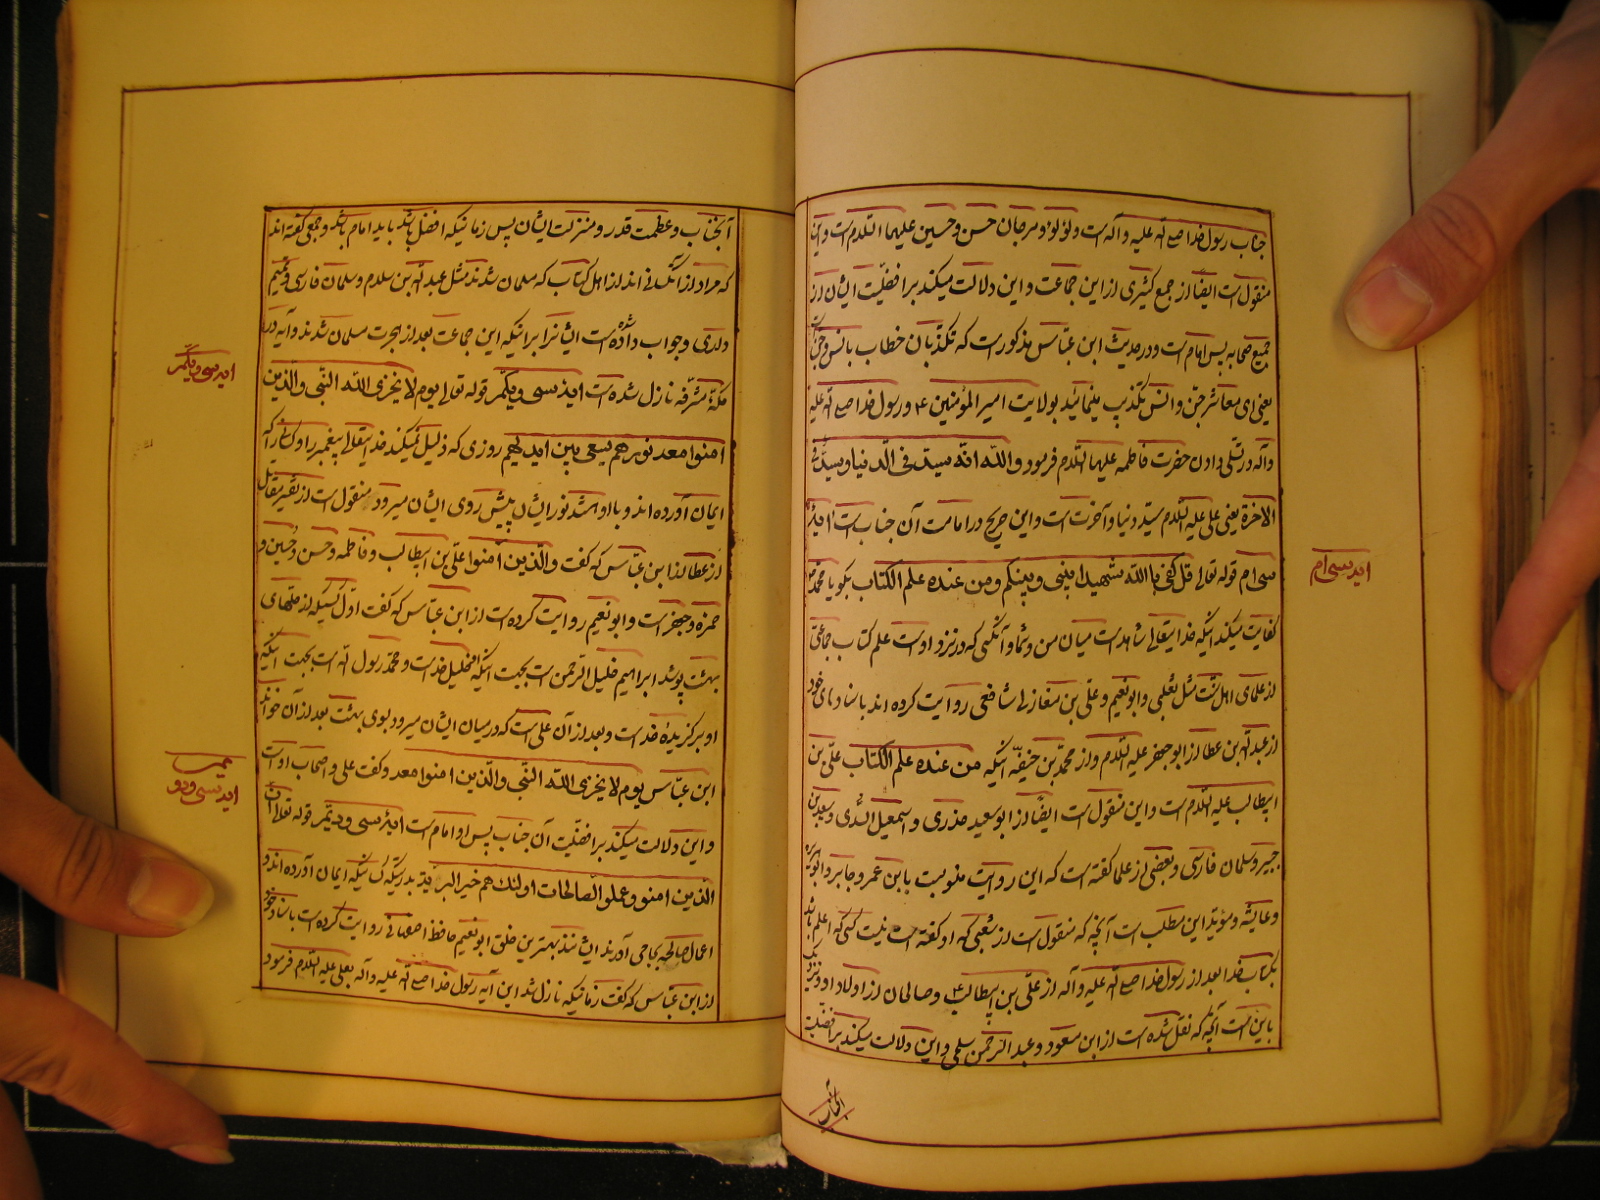 جناب رسول خدا صلی الله علیه وآله است و لؤلؤ و مرجان حسن و حسین علیهما السلام است و این
منقول است ایضًا از جمع کثیری از این جماعت و این دلالت میکند بر افضلیّت ایشان از
جمیع صحابه پس امام است و در حدیث ابن عبّاس مذکور است که تکذبان خطاب بانس و جنّ
یعنی ای معاشر جنّ و انس تکذیب مینمائید بولایت امیر المؤمنین ع و رسول خدا صلی الله علیه
وآله در تسلّی دادن حضرت فاطمه علیها السلام فرمود والله انّه سیّد فی الدنیا و سیّد فی
الاخرة یعنی علی علیه السلام سیّد دنیا و آخرت است و این صریح در امامت آن جناب است ایۀ
سی ام قوله تعالی قل کفی بالله شهیدا بینی و بینکم و من عنده علم الکتاب بگو یا محمد
کفایت میکند اینکه خدایتعالی شاهد است میان من و شما و آنکسی که در نزد اوست علم کتاب جماعتی
از علمای اهل سنّت مثل ثعلبی و ابو نعیم و علی بن مغازلی شافعی روایت کرده اند باسنادهای خود
از عبدالله بن عطا از ابو جعفر علیه السلام و از محمّد بن حنفیّه اینکه من عنده علم الکتاب علی بن
ابیطالب علیه السلام است و این منقول است ایضًا از ابو سعید خدری و اسمعیل السّدی و سعید بن
جبیر و سلمان فارسی و بعضی از علما گفته است که این روایت منسوبست بابن عمر و جابر و ابو هریره
و عایشه و مؤیّد این مطلب است آنچه که منقول است از شعبی که او گفته است نیست کسی که اعلم باشد
بکتاب خدا بعد از رسول خدا صلی الله علیه وآله از علی بن ابیطالب ع و صالحان از اولاد او و نزدیک
باین است آنچه که نقل شده است از ابن مسعود و عبد الرحمن سلمی و این دلالت میکند بر افضلیّت
آنجناب
ایه سی ام
آنجناب و عظمت قدر و منزلت ایشان پس زمانیکه افضل باشد باید امام باشد و جمعی گفته اند
که مراد از آنکسانی اند از اهل کتاب که مسلمان شدند مثل عبدالله بن سلام و سلمان فارسی و تمیم
داری و جواب داده شده است ایشانرا بر اینکه این جماعت بعد از هجرت مسلمان شدند و آیه در
مکّۀ مشرّفه نازل شده است ایۀ سی و یکمر قوله تعالی یوم لا یخزی الله النّبی والذین
امنوا معه نورهم یسعی بین ایدیهم روزی که ذلیل نمیکند خدایتعالی پیغمبر را و کسانیرا که
ایمان آورده اند و با او باشند نور ایشان پیش روی ایشان میرود منقول است از تفسیر مقاتل
از عطا از ابن عبّاس که گفت والّذین آمنوا علی بن ابیطالب و فاطمه و حسن و حسین و
حمزه و جعفر است و ابو نعیم روایت کرده است از ابن عبّاس که گفت اوّل کسیکه از حلّه های
بهشت پوشد ابراهیم خلیل الرّحمن است بجهت اینکه او خلیل خداست و محمّد رسول الله است بجهت اینکه
او برگزیدۀ خداست و بعد از آن علی است که در میان ایشان میرود بسوی بهشت بعد از آن خواند
ابن عبّاس یوم لا یخزی الله النّبی والذین امنوا معه و گفت علی و اصحاب اوست
و این دلالت میکند بر افضلیّت آن جناب پس او امام است ایۀ سی و دویّمر قوله تعالی انّ
الّذین امنو و عملو الصّالحات اولئك هم خیر البریّه بدرستیکه کسانیکه ایمان آورده اند و
اعمال صالحه بجا می آورند ایشانند بهترین خلق ابو نعیم حافظ اصفهانی روایت کرده است باسناد خود
از ابن عبّاس که گفت زمانیکه نازل شد این آیه رسول خدا صلی الله علیه وآله بعلی علیه السلام فرمود
ایه سی و یکمر
ایه سی و دو